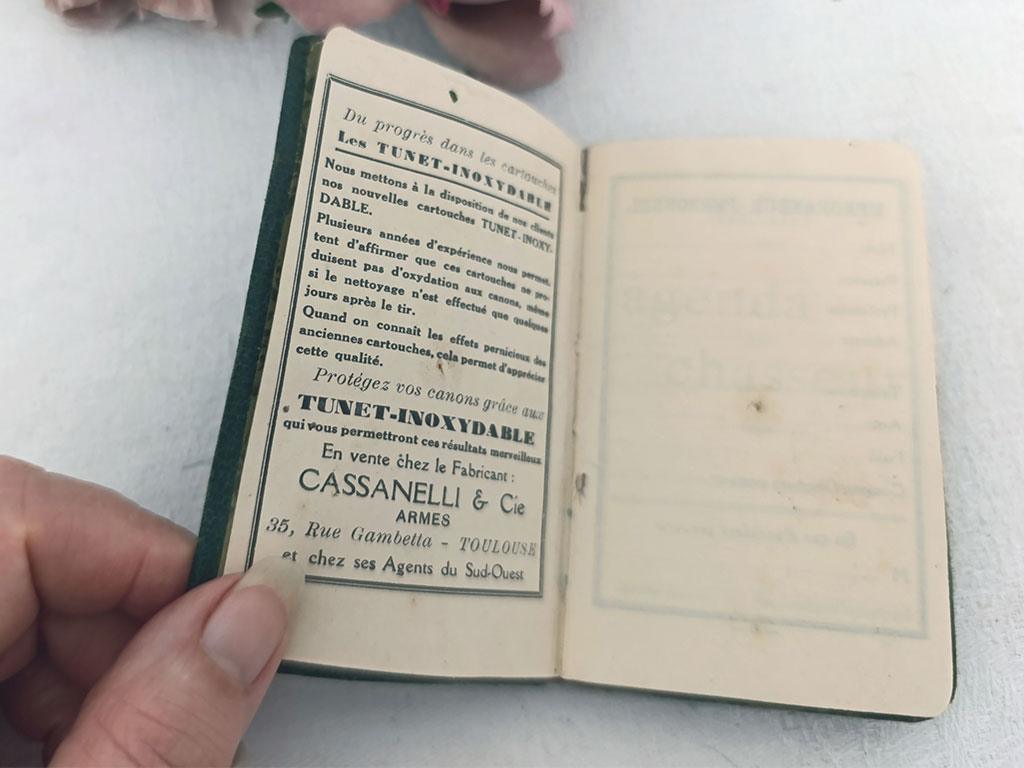 Du progrès dans les cartouches
Les TUNET-INOXYDABLE
Nous mettons à la disposition de nos clients
nos nouvelles cartouches TUNET-INOXY-
DABLE.
Plusieurs années d'expérience nous permet.
tent d'affirmer que ces cartouches ne pro-
duisent pas d'oxydation aux canons, même
si le nettoyage n'est effectué que quelques
jours après le tir.
Quand on connait les effets pernicieux des
anciennes cartouches, cela permet d'apprécier
cette qualité.
Protégez vos canons grâce aux
TUNET-INOXYDABLE
qui vous permettront ces résultats merveilleux
En vente chez le Fabricant :
CASSANELLI & Cie
ARMES
35, Rue Gambetta - TOULOUSE
et chez ses Agents du Sud-Ouest
agenda